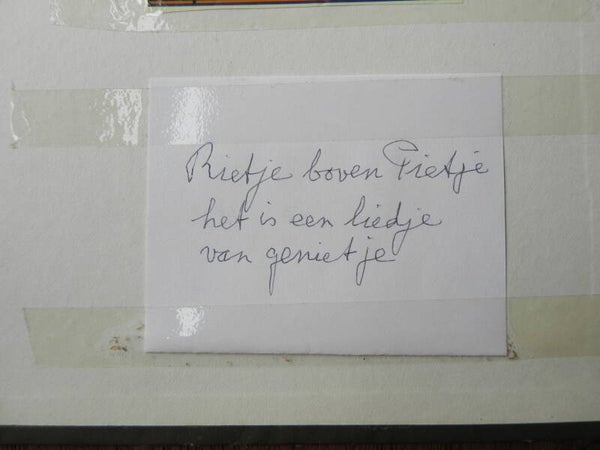 Rietje boven Pietje
het is een liedje
van genietje